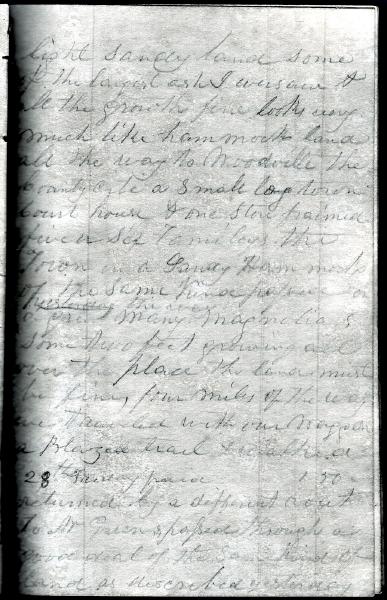 light sandy land some
of the largest ash I ever saw &
all the growth fine looks very
much like hammock land
all the way to Woodville the
County site a small log town
Court house & one Store framed
five or six families the
Town on a Sandy Hammock
of the same kind passed
a great many magnolias
some two feet growing all
over the place the land must
be fine, four miles of the way
we traveled with our Waggon
a Blazed trail
28th Ferry paid 1.50
returned by a different rout
To Mr Greens passed through a
good deal of the same kind of
land as described yesterday